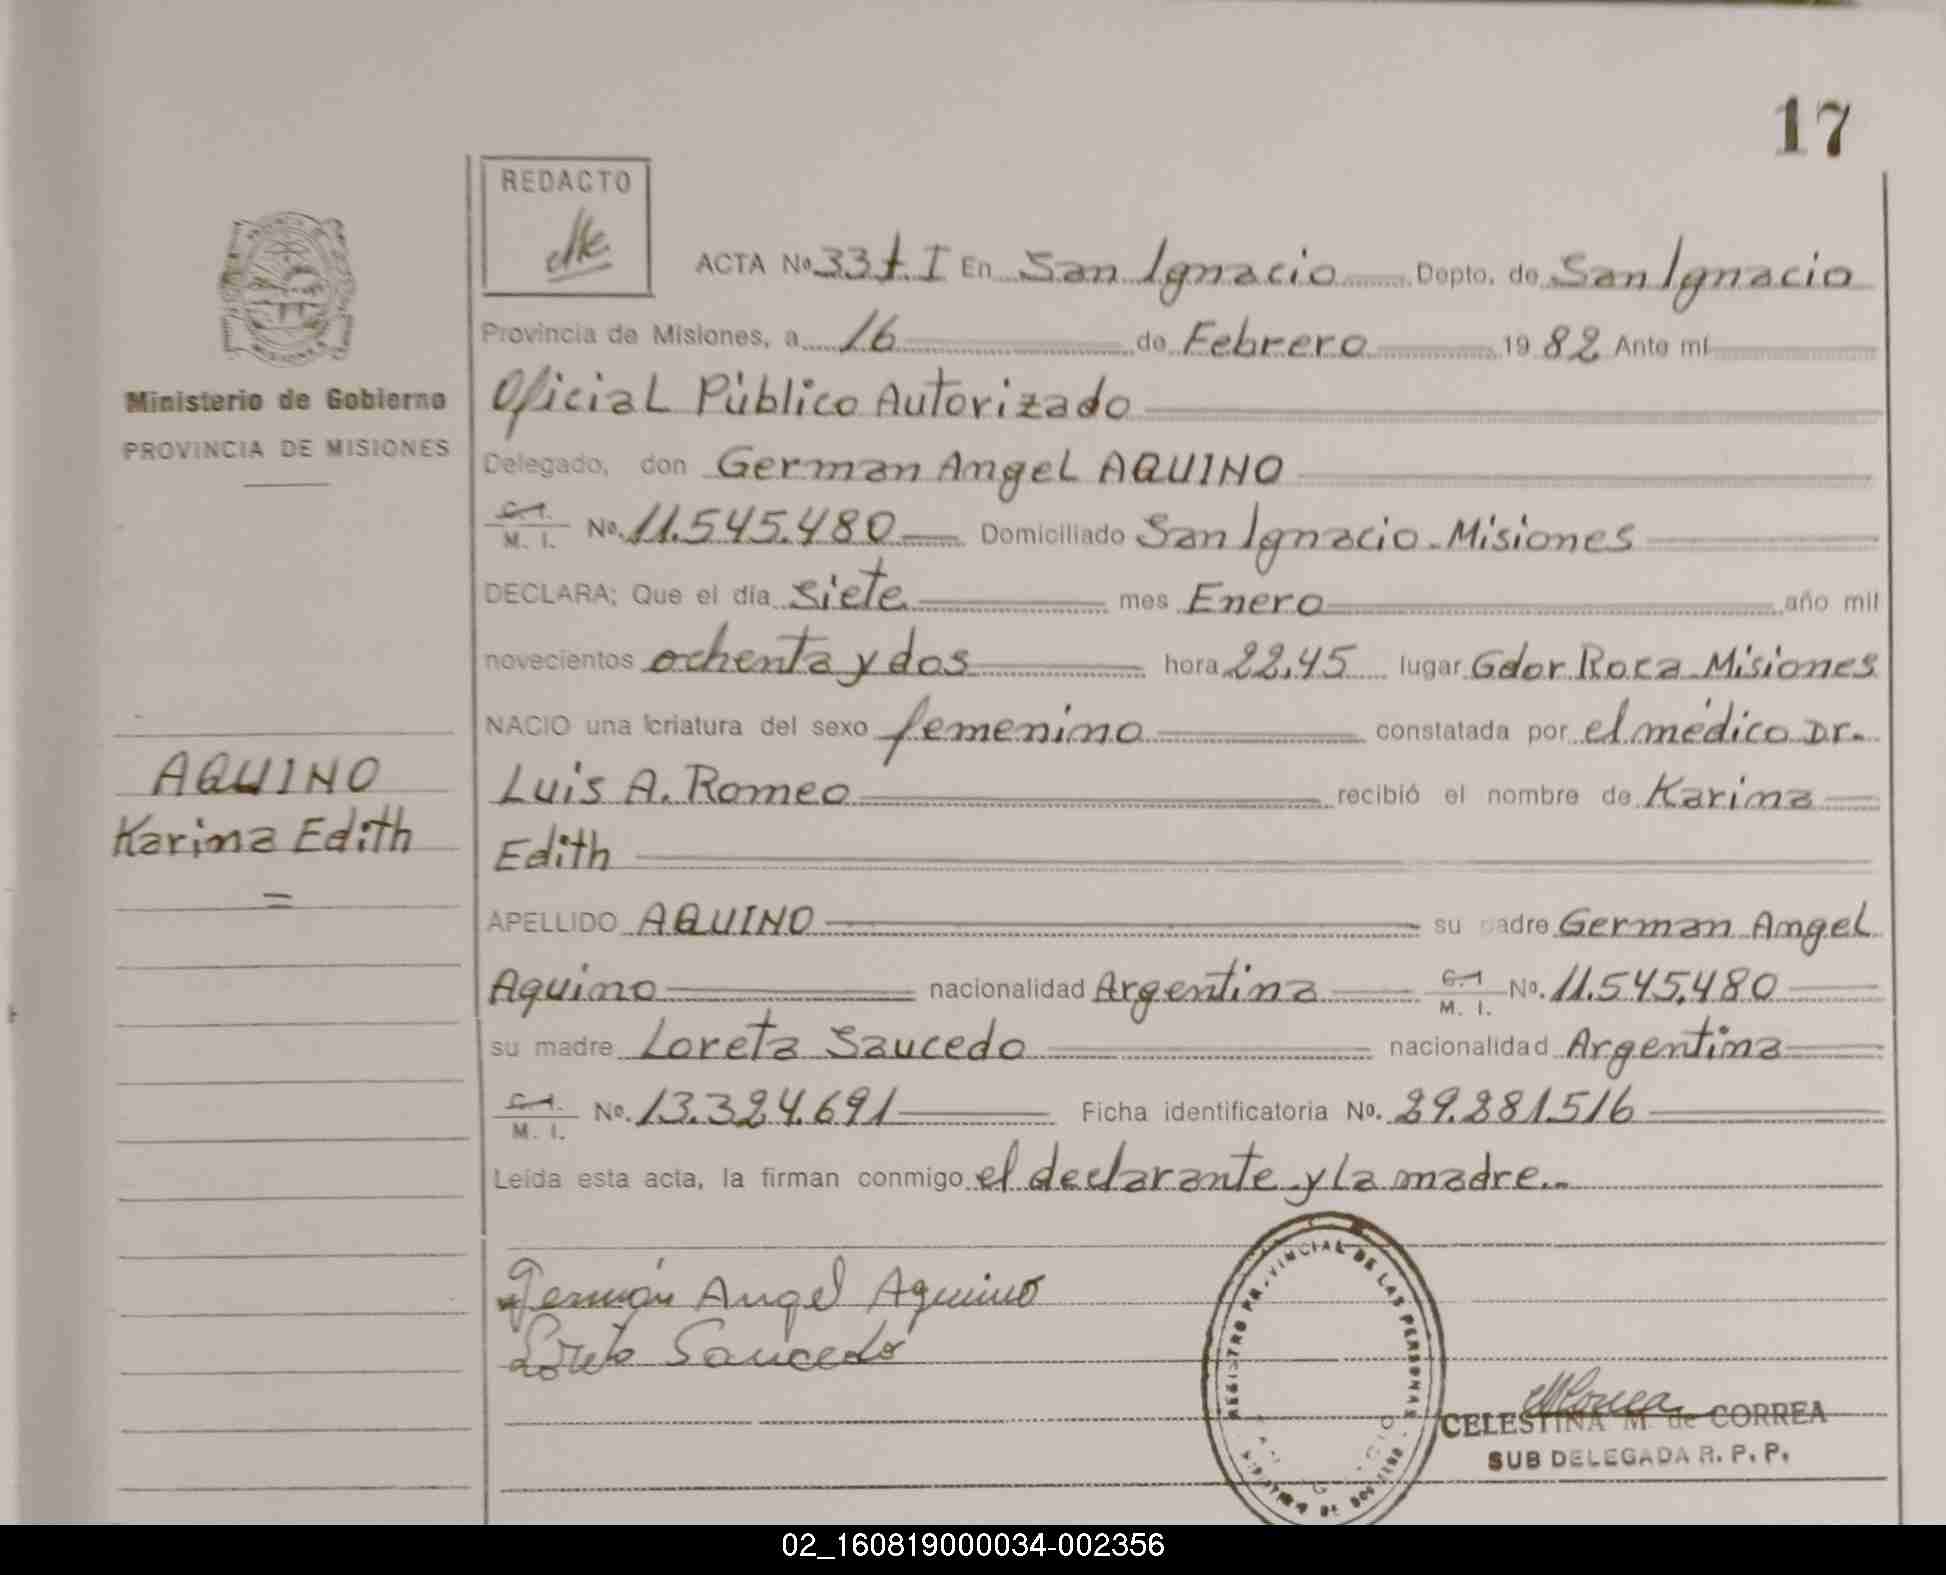 17
REDACTO
ACTA Nº 33 t. I En San Ignacio Depto. de San Ignacio
Provincia de Misiones, a 16 de Febrero 1982 Ante mí
Oficial Público Autorizado
Delegado, don German Angel AQUINO
C.I. M. I. No. 11.545.480 Domiciliado San Ignacio - Misiones
DECLARA: Que el día siete mes Enero año mil
novecientos ochenta y dos hora 22,45 lugar Gdor Roca Misiones
NACIO una criatura del sexo femenino constatada por el médico Dr.
Luis A. Romeo recibió el nombre de Karina
Edith
APELLIDO AQUINO su padre German Angel
Aquino nacionalidad Argentina C.I. M. I. No. 11.545.480
su madre Loreta Saucedo nacionalidad Argentina
C.I. M. I. No. 13.324.691 Ficha identificatoria No. 29.281.516
Leída esta acta, la firman conmigo el declarante y la madre.-
Germán Angel Aquino
Loreta Saucedo
Ministerio de Gobierno
PROVINCIA DE MISIONES
AQUINO
Karina Edith
REGISTRO PROVINCIAL DE LAS PERSONAS
CELESTINA M de CORREA
SUB DELEGADA R. P. P.
02_160819000034-002356